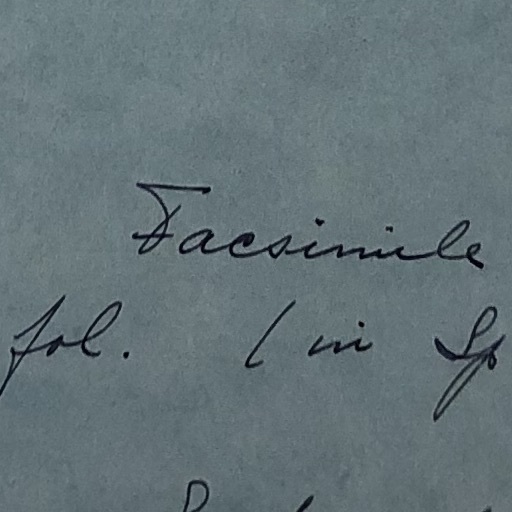 Facsimile
fol. (in Sp